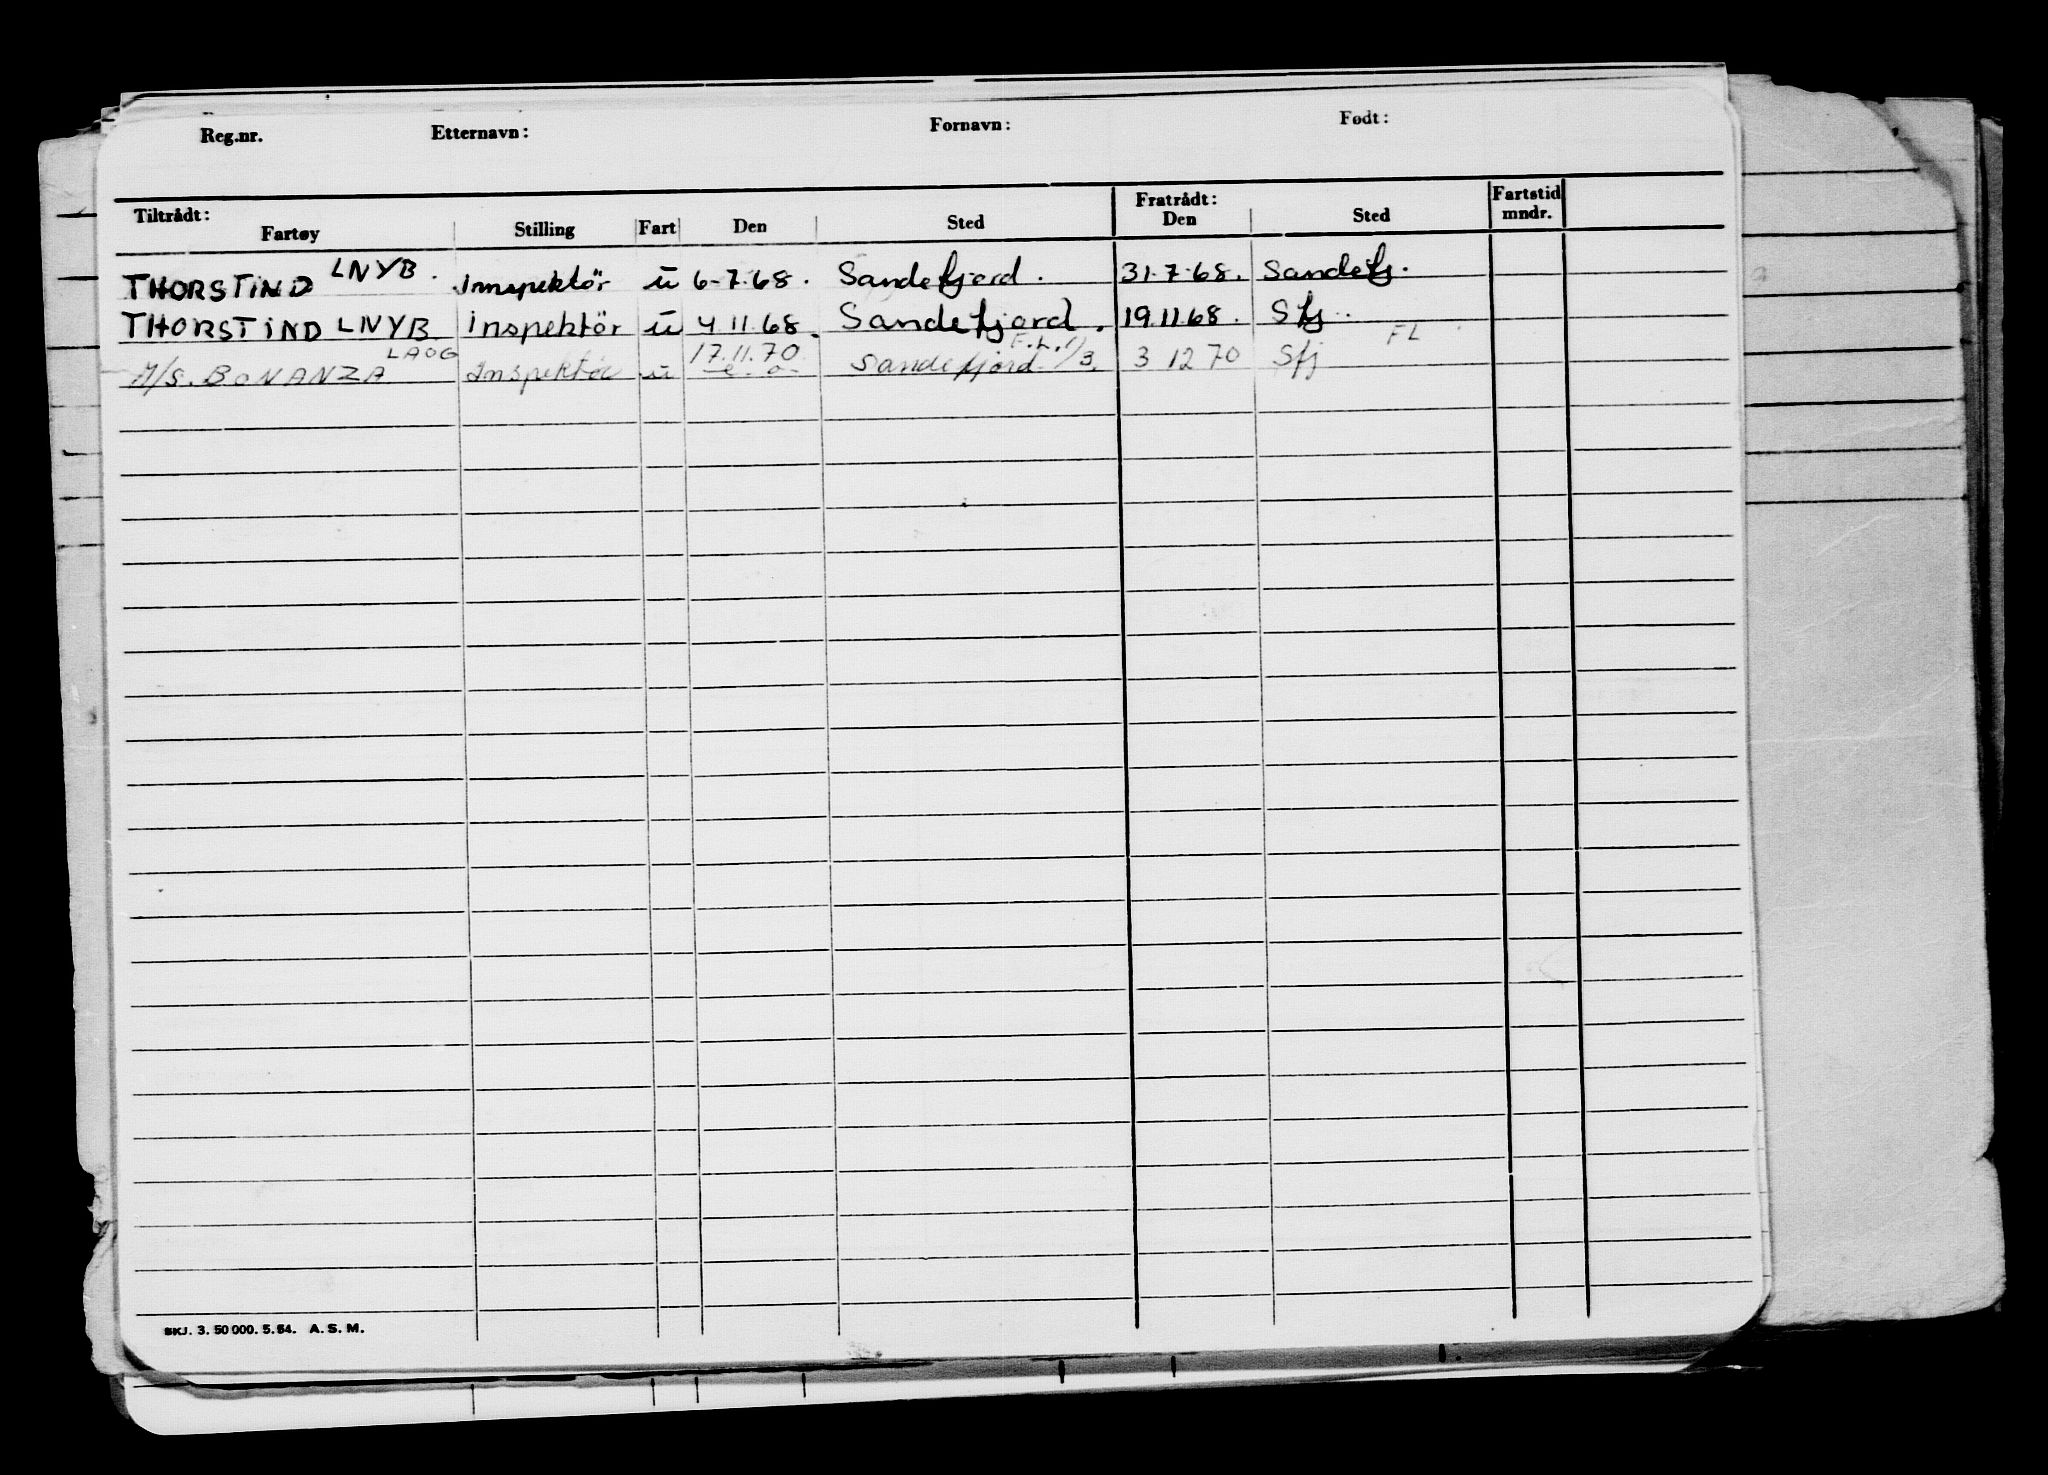 Reg.nr. Etternavn: Fornavn: Født:
Tiltrådt: Fratrådt: Fartstid
Fartøy Stilling Fart Den Sted Den Sted mndr.
THORSTIND LNYB. Innspektör u 6-7.68. Sandefjord. 31.7.68. Sandefj.
THORSTIND LNYB Inspektör u 4.11.68. Sandefjord. 19.11.68. Sfj.
LAOG 17.11.70. F.L. FL
M/S. BONANZA Inspektör u Sandefjord 1/3. 3 12 70 Sfj
SKJ. 3. 50 000. 5. 64. A. S. M.